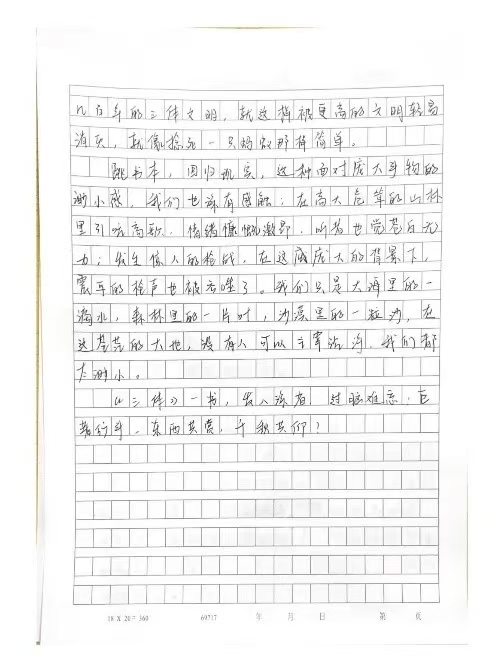 几百年的三体文明，就这样被更高的文明轻易
消灭，就像捻死一只蚂蚁那样简单。
跳书本，回归现实，这种面对庞大事物的
渺小感，我们也深有感触：在高大
里引吭高歌，情绪慷慨激昂，听着也觉苍白无
力；发生惊人的枪战，在这威庞大的背景下，
震耳的枪声也被吞噬了。我们只是大海里的一
滴水，森林里的一片叶，沙漠里的一粒沙，在
这茫茫的大地，没有人可以主宰沉浮，我们都
太渺小。
《三体》一书，发人深省，过目难忘：巨
著，东西共赏，千秋共仰！
18 X 20 = 360 69717 年 月 日 第 页